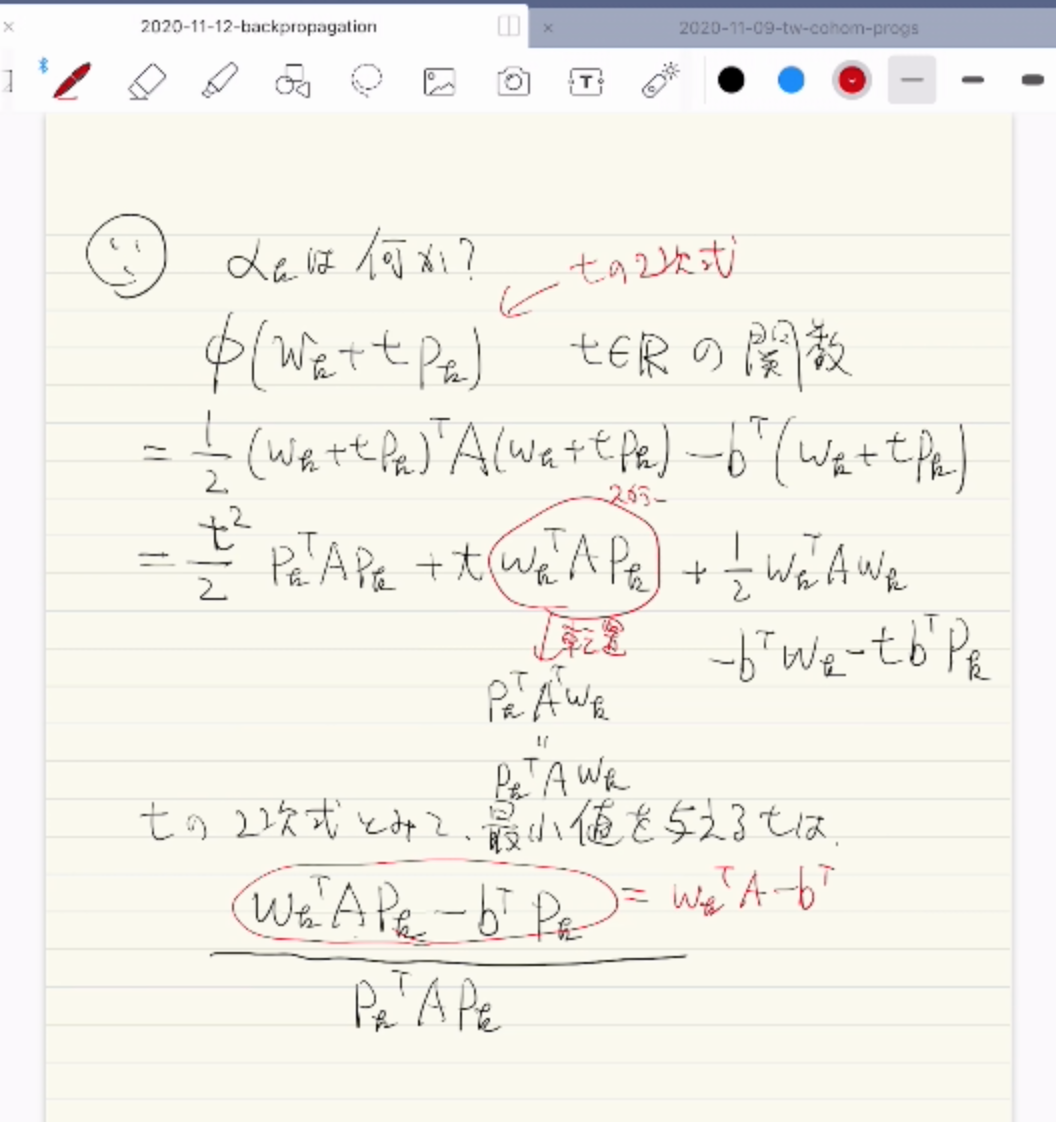 2020-11-12-backpropagation
2020-11-09-tw-cohom-progs
T
α_k は 何か?
tの2次式
φ(w_k+tp_k) t∈ℝ の 関数
= 1/2 (w_k+tp_k)^T A(w_k+tp_k) -b^T(w_k+tp_k)
= t^2/2 p_k^T A p_k + t w_k^T A p_k + 1/2 w_k^T A w_k
-b^T w_k - t b^T p_k
転置
p_k^T A^T w_k
=
p_k^T A w_k
tの 2次式とみて、最小値を与えるtは
w_k^T A p_k - b^T p_k = w_k^T A - b^T
p_k^T A p_k